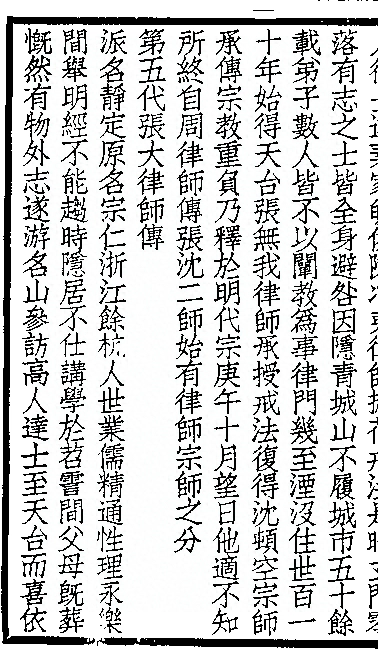 落有志之士皆全身避咎因隱青城山不履城市五十餘
載弟子數人皆不以闡教為事律門幾至湮沒住世百一
十年始得天台張無我律師承授戒法復得沈頓空宗師
承傳宗教重負乃釋於明代宗庚午十月望日他適不知
所終自周律師傳張沈二師始有律師宗師之分
第五代張大律師傳
派名靜定原名宗仁浙江餘杭人世業儒精通性理永樂
間舉明經不能趨時隱居不仕講學於苕霅間父母既葬
慨然有物外志遂游名山參訪高人達士至天台而喜依